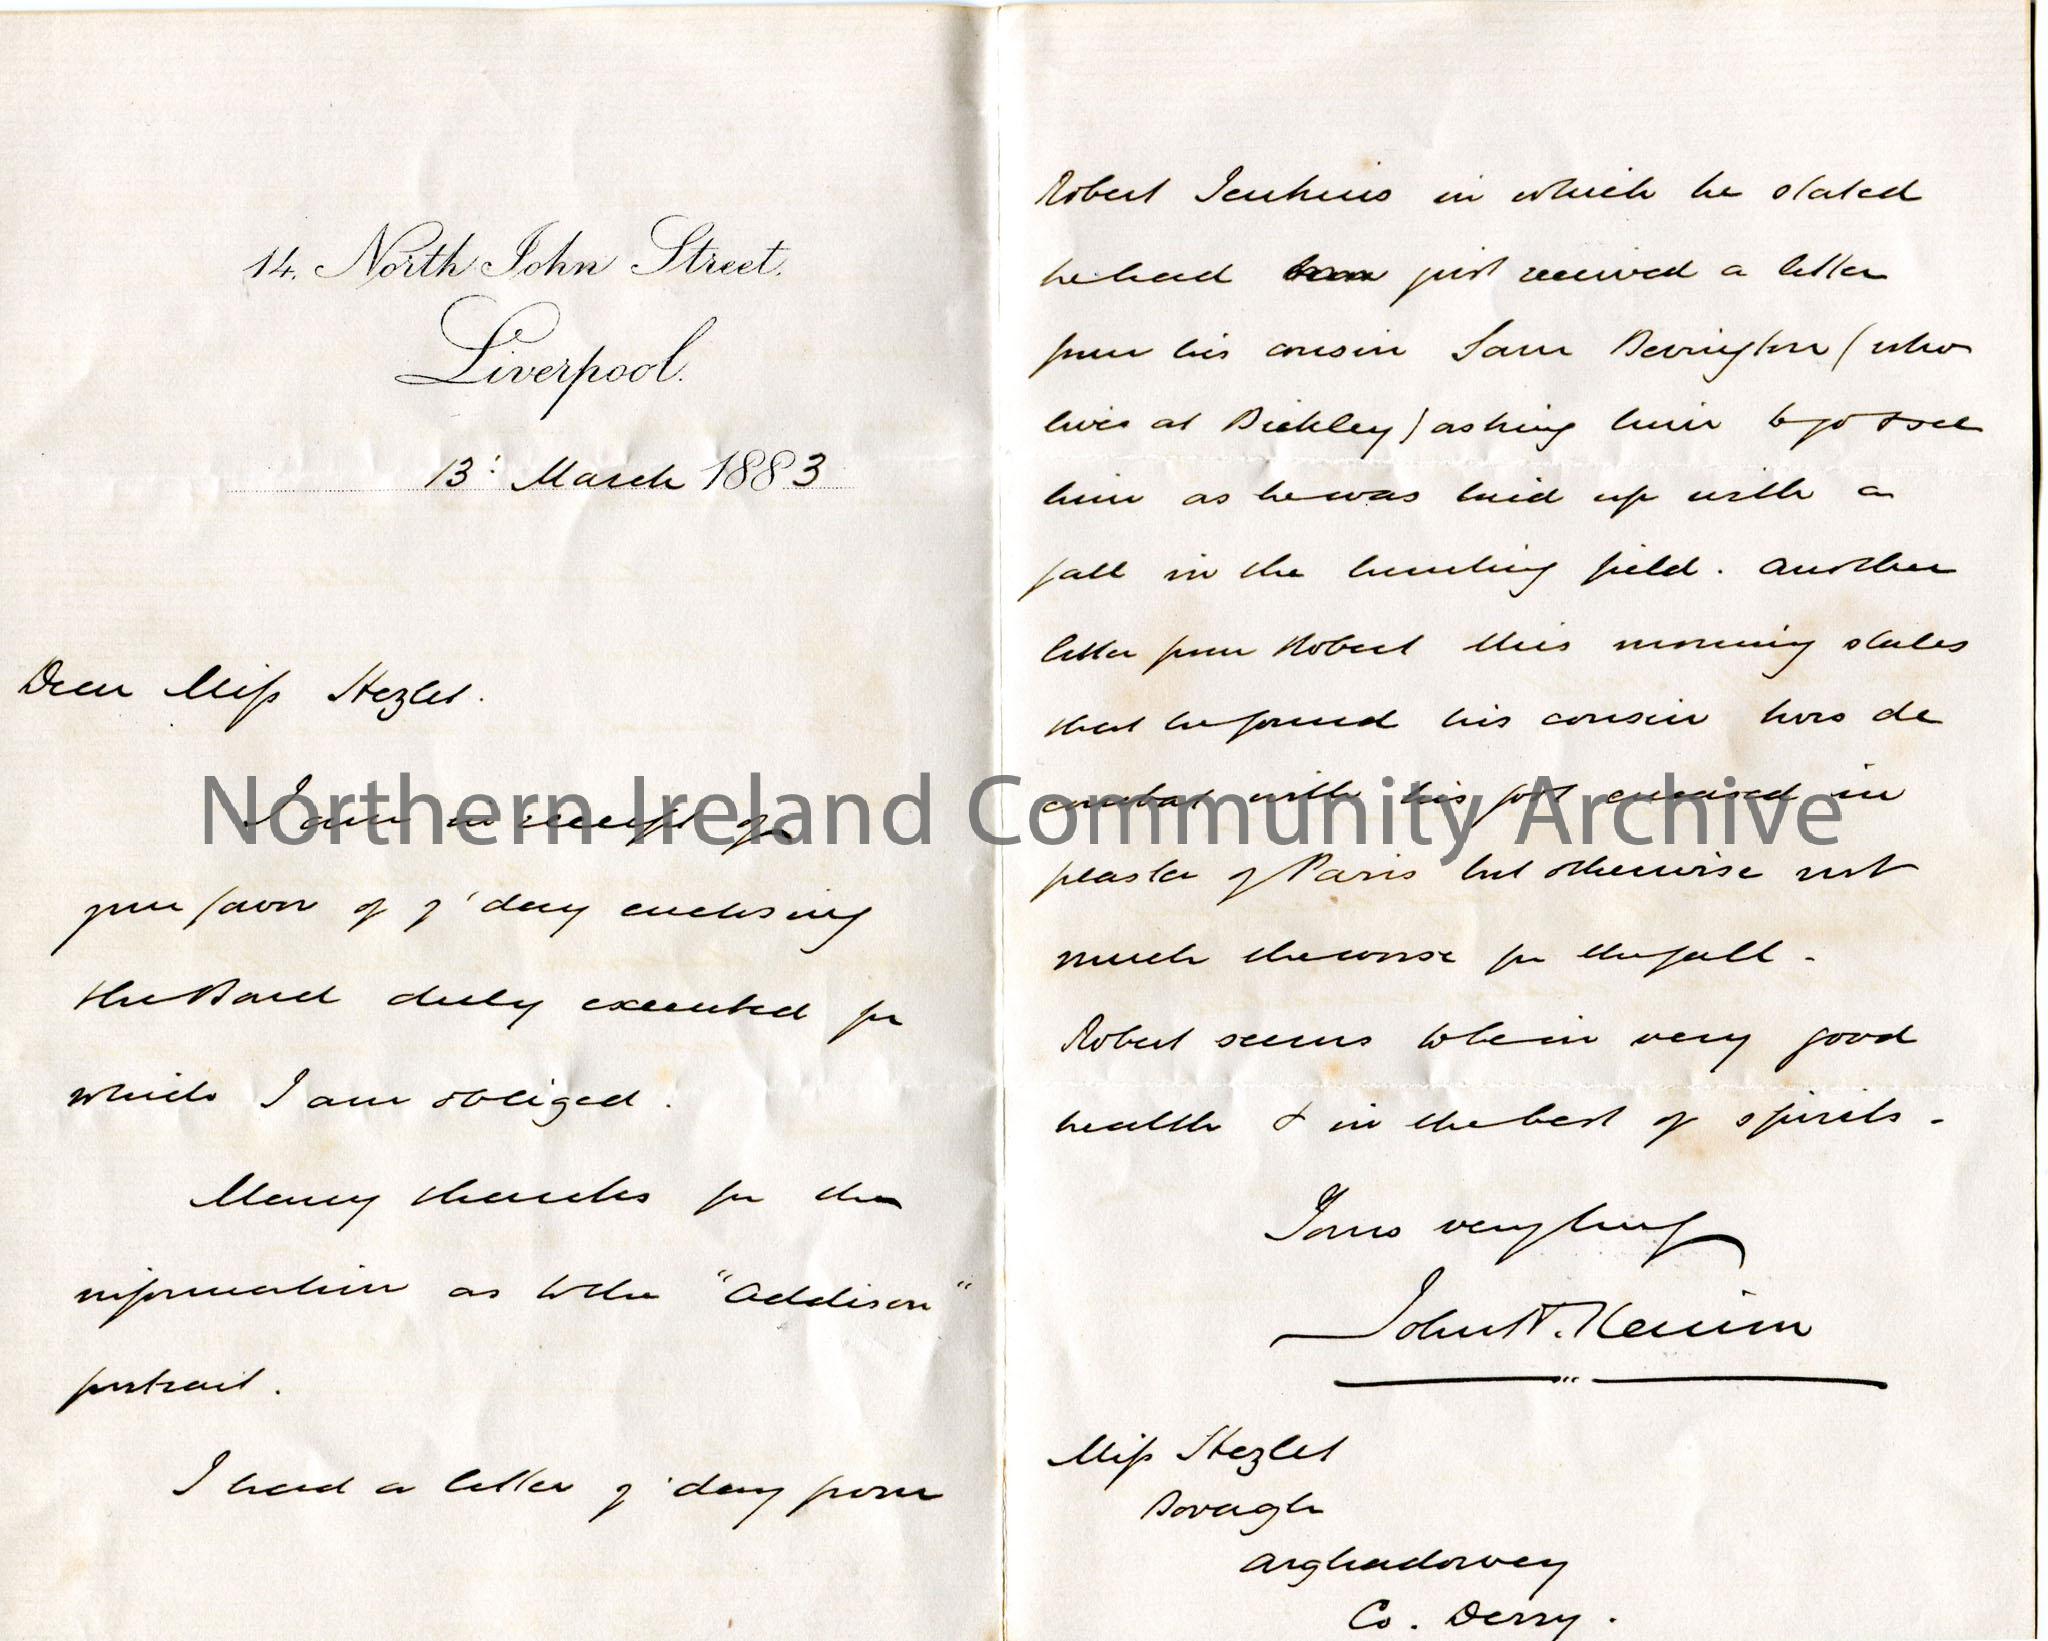 14, North John Street,
Liverpool.
13: March 1883
Dear Miss Hezlet.
I am in receipt of
your favor of y'day enclosing
the Bond duly executed for
which I am obliged.
Many thanks for the
information as to the "Addison"
portrait.
I had a letter y'day from
Robert Jenkins in which he stated
he had just received a letter
from his cousin Sam Bevington (who
lives at Bickley) asking him to go & see
him as he was laid up with a
fall in the hunting field. Another
letter from Robert this morning states
that he found his cousin hors de
combat with his foot encased in
plaster of Paris but otherwise not
much the worse for the fall.
Robert seems to be in very good
health & in the best of spirits.
Yours very truly
John
Miss Hezlet
Bovagh
Arghadowey
Co. Derry.
Northern Ireland Community Archive